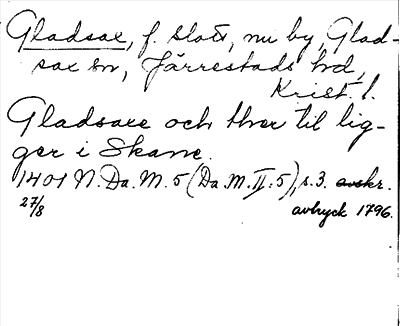 Gladsax, f. slott, nu by, Glad-
sax sn, Järrestads hd,
Krist. l.
Gladsaxe och ther til lig-
ger i Skane.
1401 N. Da. M. 5 (Da. M. II: 5), s. 3. avskr.
27/8 avtryck 1796.